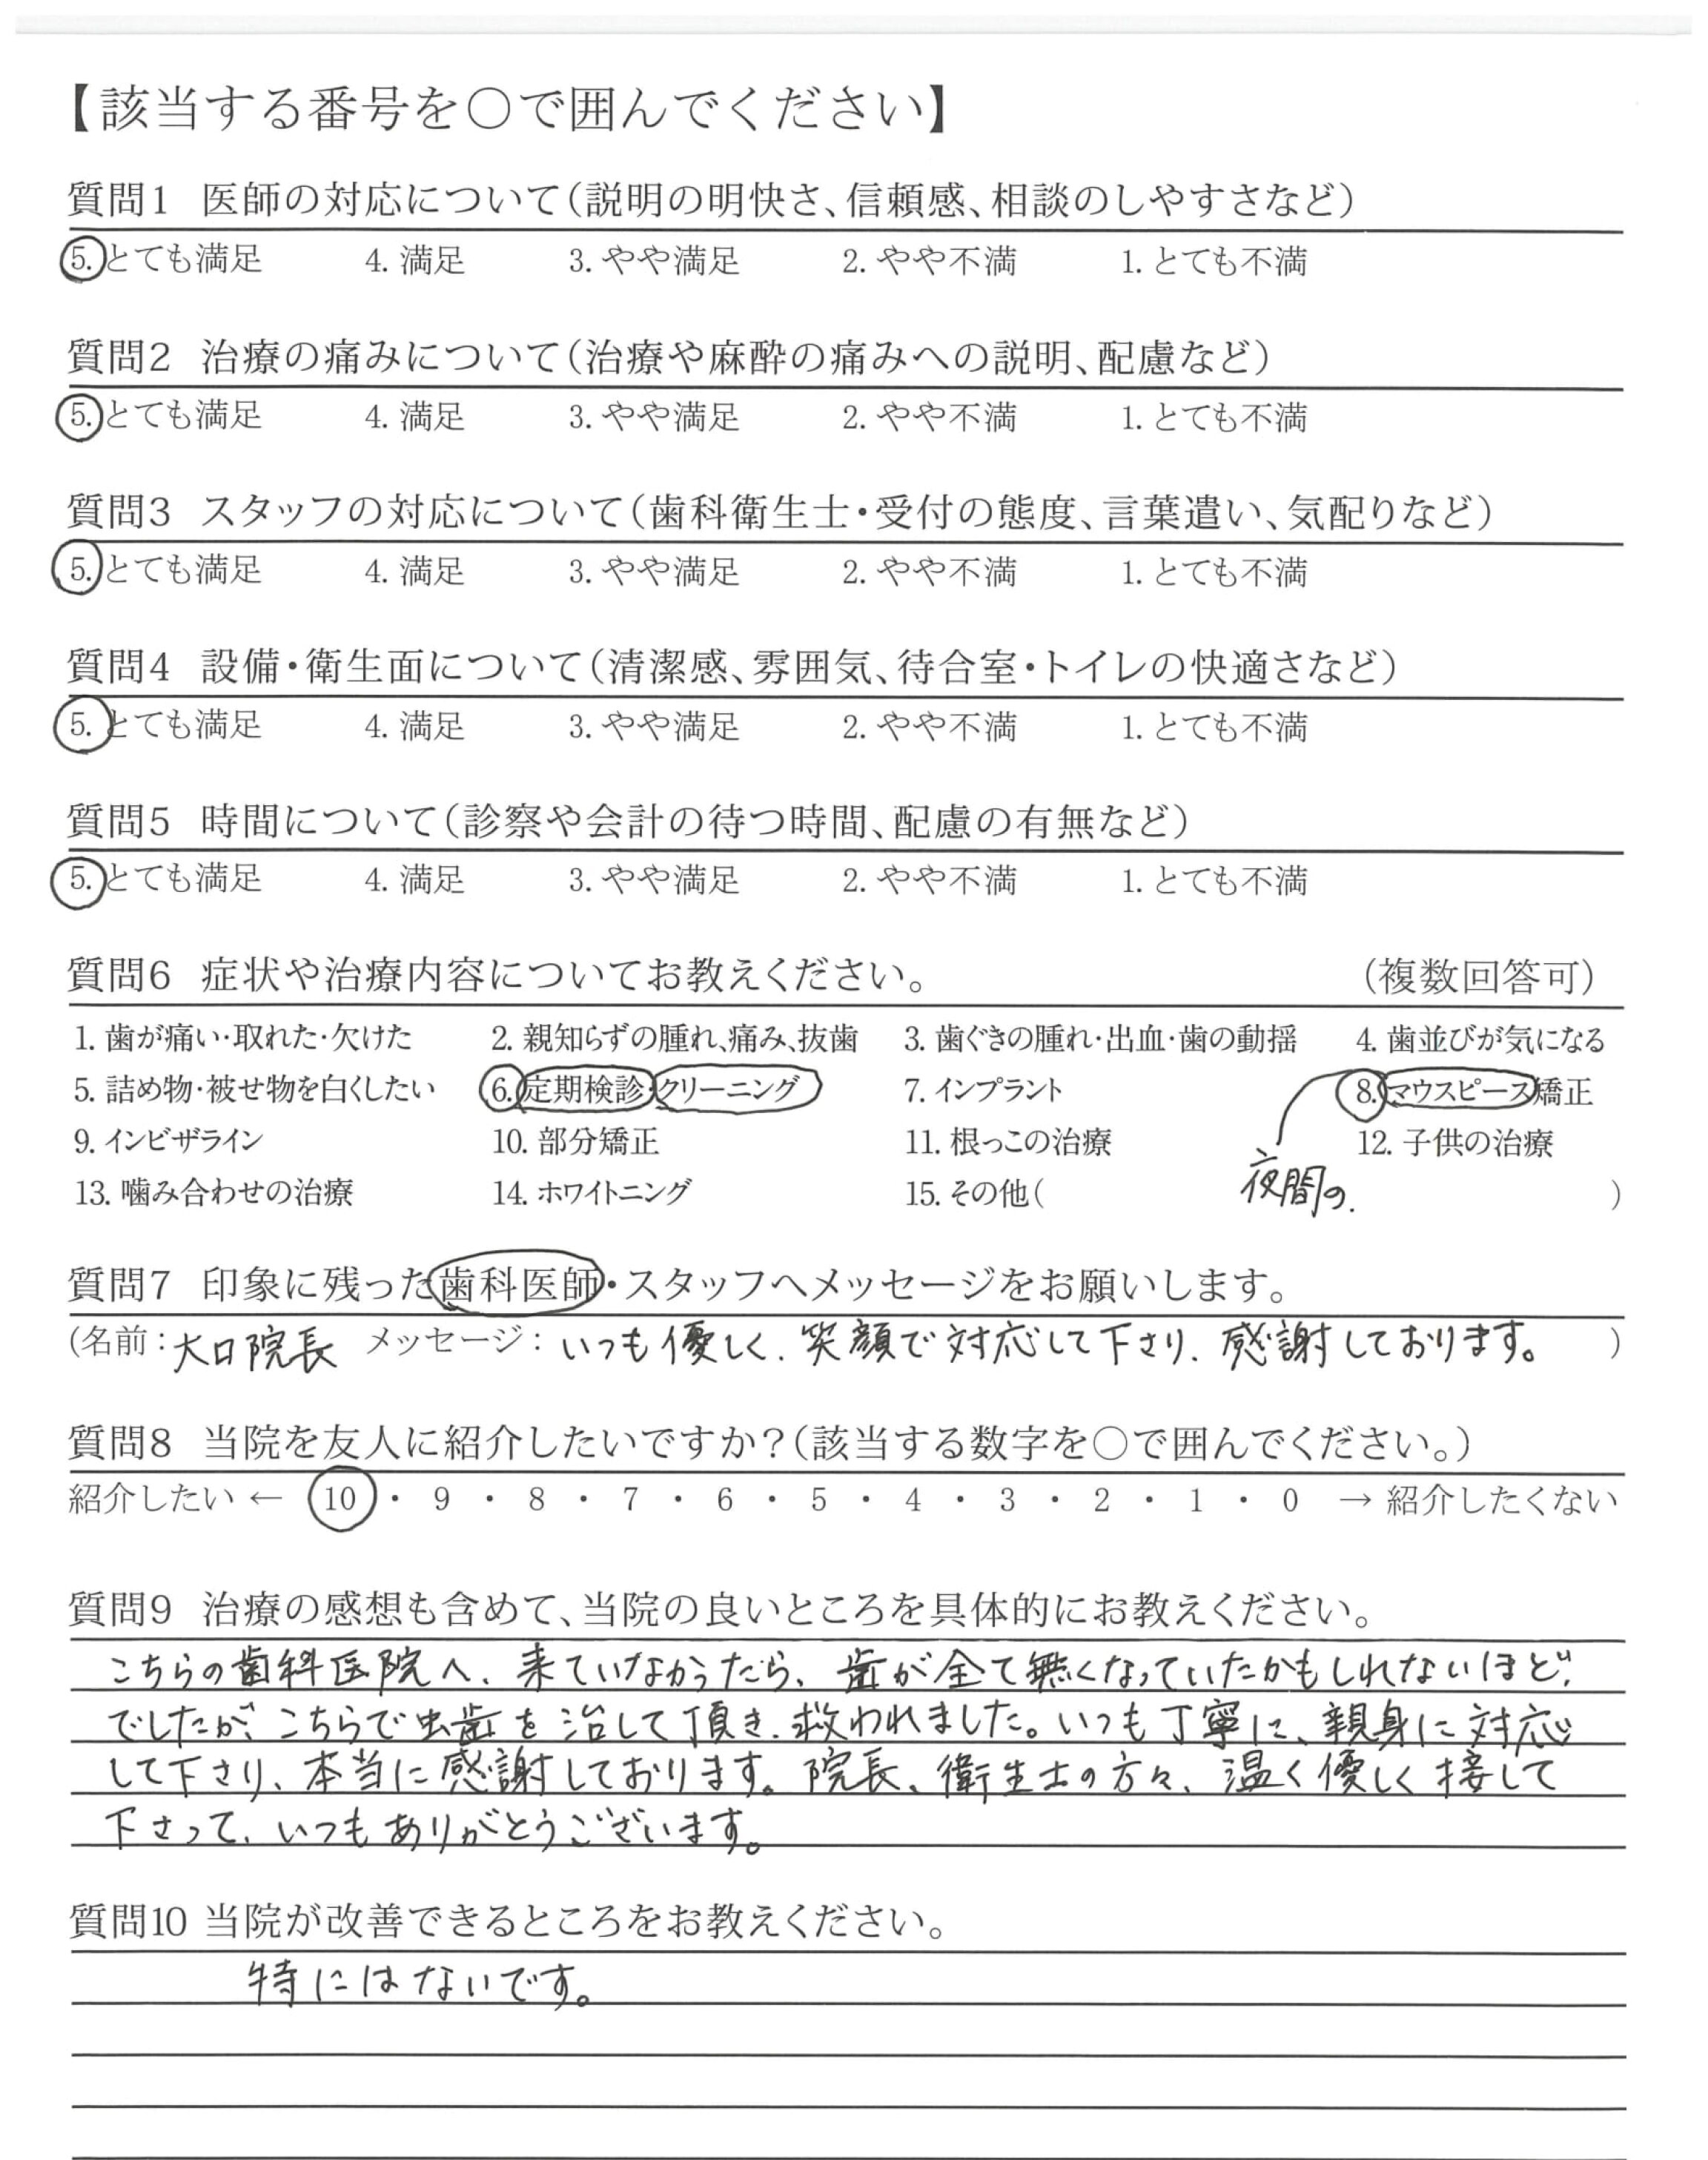 【該当する番号を○で囲んでください】
質問1 医師の対応について(説明の明快さ、信頼感、相談のしやすさなど)
5. とても満足 4. 満足 3. やや満足 2. やや不満 1. とても不満
質問2 治療の痛みについて(治療や麻酔の痛みへの説明、配慮など)
5. とても満足 4. 満足 3. やや満足 2. やや不満 1. とても不満
質問3 スタッフの対応について(歯科衛生士・受付の態度、言葉遣い、気配りなど)
5. とても満足 4. 満足 3. やや満足 2. やや不満 1. とても不満
質問4 設備・衛生面について(清潔感、雰囲気、待合室・トイレの快適さなど)
5. とても満足 4. 満足 3. やや満足 2. やや不満 1. とても不満
質問5 時間について(診察や会計の待つ時間、配慮の有無など)
5. とても満足 4. 満足 3. やや満足 2. やや不満 1. とても不満
質問6 症状や治療内容についてお教えください。 (複数回答可)
1. 歯が痛い・取れた・欠けた 2. 親知らずの腫れ、痛み、抜歯 3. 歯ぐきの腫れ・出血・歯の動揺 4. 歯並びが気になる
5. 詰め物・被せ物を白くしたい 6. 定期検診・クリーニング 7. インプラント 8. マウスピース矯正
9. インビザライン 10. 部分矯正 11. 根っこの治療 12. 子供の治療
13. 噛み合わせの治療 14. ホワイトニング 15. その他( 夜間の. )
質問7 印象に残った歯科医師・スタッフへメッセージをお願いします。
(名前:大口院長 メッセージ:いつも優しく、笑顔で対応して下さり、感謝しております。 )
質問8 当院を友人に紹介したいですか?(該当する数字を○で囲んでください。)
紹介したい ← 10 ・ 9 ・ 8 ・ 7 ・ 6 ・ 5 ・ 4 ・ 3 ・ 2 ・ 1 ・ 0 → 紹介したくない
質問9 治療の感想も含めて、当院の良いところを具体的にお教えください。
こちらの歯科医院へ、来ていなかったら、歯が全て無くなっていたかもしれないほど、
でしたが、こちらで虫歯を治して頂き、救われました。いつも丁寧に、親身に対応
して下さり、本当に感謝しております。院長、衛生士の方々、温く優しく接して
下さって、いつもありがとうございます。
質問10 当院が改善できるところをお教えください。
特にはないです。